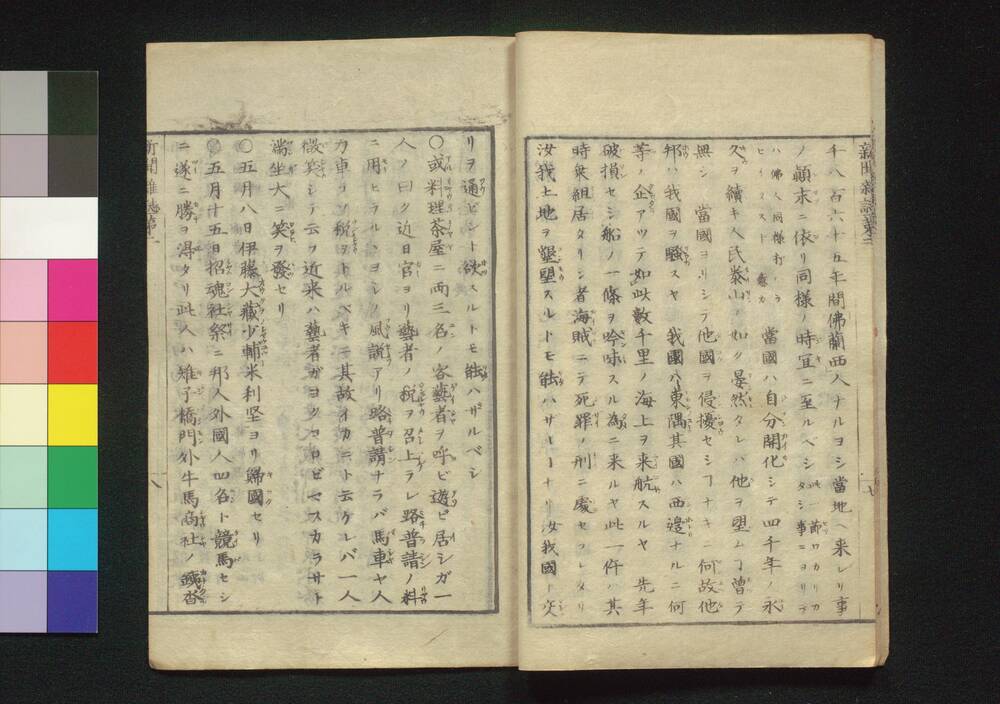 千八百六十五年間佛蘭西人ナルヨシ當地ヘ来レリ事
ノ顛末ニ依リ同様ノ時宜ニ至ルベシ此一節ワカリカタシ事ニヨリテ
ハ佛人同様打
當國ハ自分開化シテ四千年ノ永
久ヲ續キ人民泰山ノ如ク晏然タレハ他ヲ望ム丁曾テ
無シ 當國ヨリシテ他國ヲ侵擾セシ丁ナキニ何故他
邦ハ我國ヲ騒スヤ 我國ハ東隅其國ハ西邉ナルニ何
等ノ企アツテ如此數千里ノ海上ヲ来航スルヤ 先年
破損セシ船ノ一條ヲ吟味スル為ニ来ルヤ此一件ハ其
時衆組居タリシ者海賊ニテ死罪ノ刑ニ處セラレタリ
汝我土地ヲ望スルトモ能ハサルナリ汝我國ト交
リヲ通ビント欲スルトモ能ハザルベシ
〇或料理茶屋ニ両三名ノ客藝者ヲ呼ビ遊ビ居シガ一
人ノ曰ク近日官ヨリ藝者ノ税ヲ召上ラレ路普請ノ料
ニ用ヒラルヽヨシノ風説アリ路普請ナラバ馬車ヤ人
力車コソ税ヲトルベキニ其故イカニト云ケレバ一人
微笑シテ云フ近来ハ藝者ガヨクコロビマスカラサト
満坐大ニ笑ヲ發セリ
〇五月八日伊藤大藏少輔米利堅ヨリ歸國セリ
〇五月十五日招魂社祭ニ邦人外國人四名ト競馬セシ
ニ遂ニ勝ヲ得タリ此人ハ雉子橋門外牛馬商社ノ
新聞雜誌第二
八